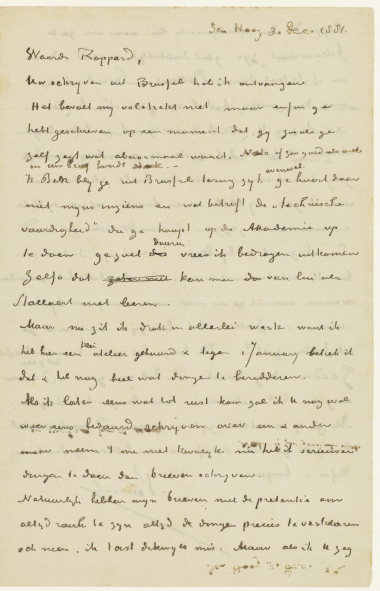 den Haag 30 Dec. 1881.
Waarde Rappard,
Uw schrijven uit Brussel heb ik ontvangen
Het bevalt mij volstrekt niet maar enfin ge
hebt geschreven op een moment dat gij zooals ge
zelf zegt wat abnormaal waart.
in uw brief houdt
Ik ben blij ge uit Brussel terug zijt, ge hoort daar
niet mijns inziens en wat betreft de „technische
vaardigheid” die ge hoopt op de Akademie op
te doen ge zult daarin vrees ik bedrogen uitkomen
Zelfs dat kan men van lui als
Stallaert niet leeren.
Maar nu zit ik druk in allerlei werk want ik
heb hier een klein atelier gehuurd & tegen 1 January betrek ik
dat & heb nog heel wat dingen te beredderen.
Als ik later eens wat tot rust kom zal ik U nog wel
weer eens bedaard schrijven over een & ander
maar neem 't me niet kwalijk nu heb ik serieuser
dingen te doen dan brieven schrijven.
Natuurlijk hebben mijn brieven niet de pretentie om
altijd raak te zijn altijd de dingen precies te verklaren
och neen, ik tast dikwijls mis. Maar als ik U zeg